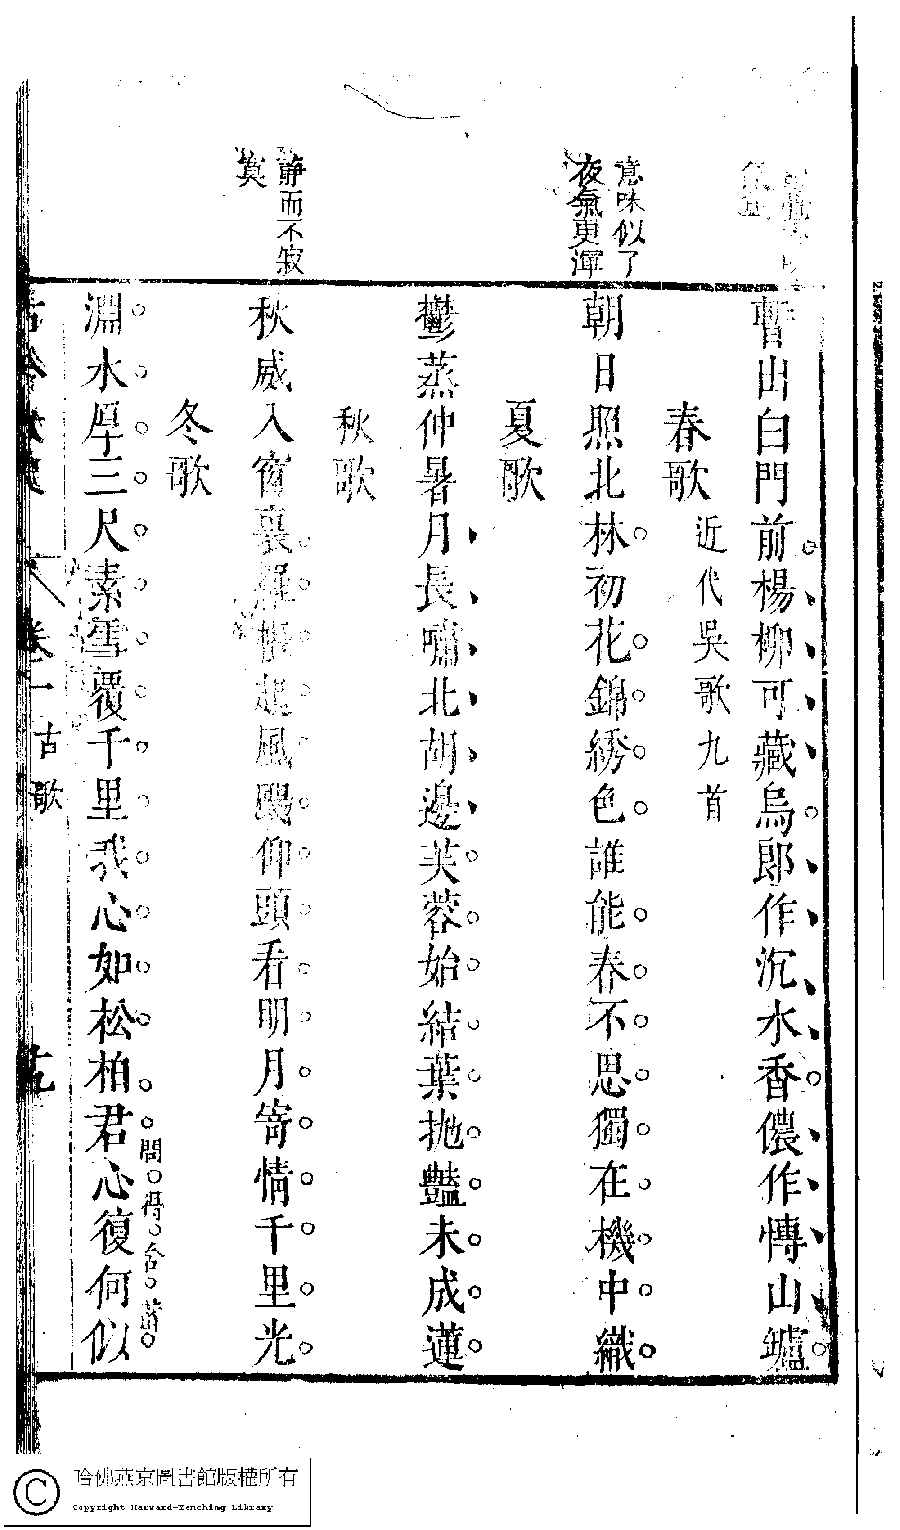 意味似了
夜氣更渾
靜而不寂
寞
暫出白門前楊柳可藏烏郎作沉水香儂作愽山罏
春歌 近代吳歌九首
朝日照北林初花錦綉色誰能春不思獨在機中織
夏歌
鬱蒸仲暑月長嘯北胡邊芙蓉始結葉抛豔未成蓮
秋歌
秋威入窗裏羅帳起風颺仰頭看明月寄情千里光
冬歌
淵水厚三尺素雪覆千里我心如松柏君心復何似 問得含蓄
卷一 古歌
哈佛燕京圖書館版權所有
Copyright Harvard-Yenching Library